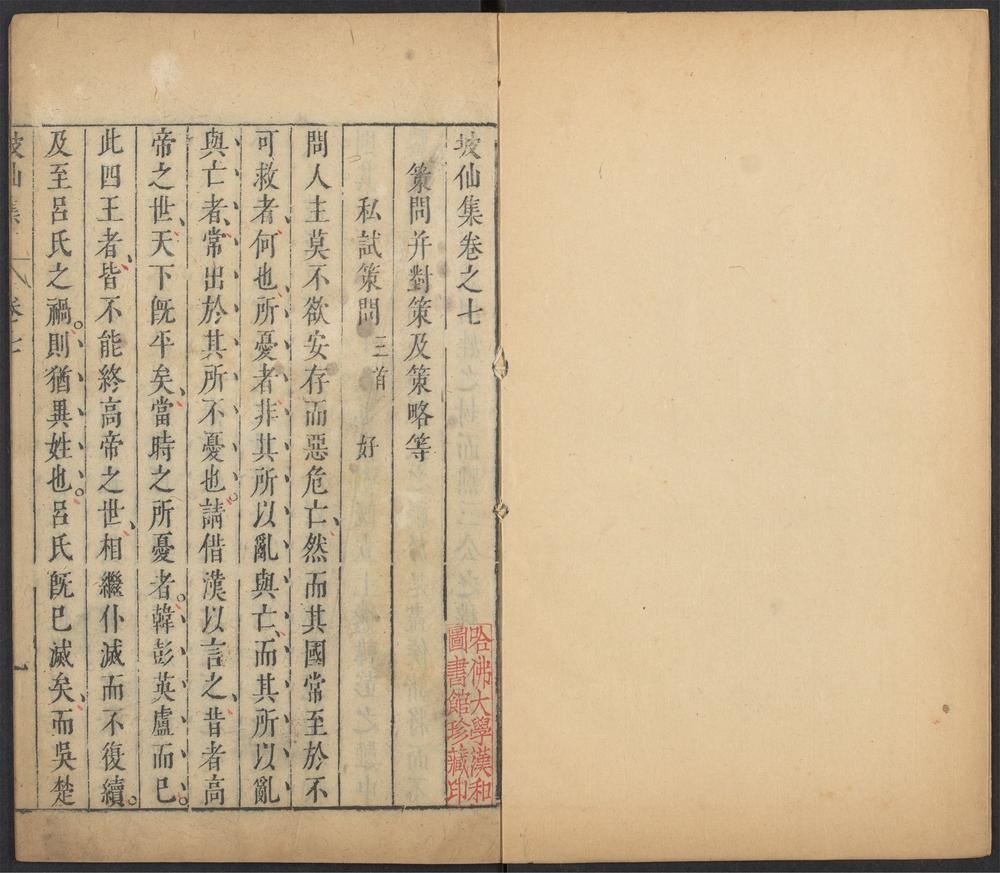 坡仙集卷之七
策問并對策及策略等
私試策問 三首 好
問人主莫不欲安存而惡危亡、然而其國常至於不
可救者、何也、所憂者、非其所以亂與亡、而其所以亂
與亡者、常出於其所不憂也。請借漢以言之、昔者高
帝之世、天下旣平矣、當時之所憂者。韓彭英盧而已。
此四王者、皆不能終高帝之世、相繼仆滅而不復續。
及至呂氏之禍。則猶異姓也。呂氏旣已滅矣、而吳楚
坡仙集 卷七 一
哈佛大學漢和
圖書館珍藏印